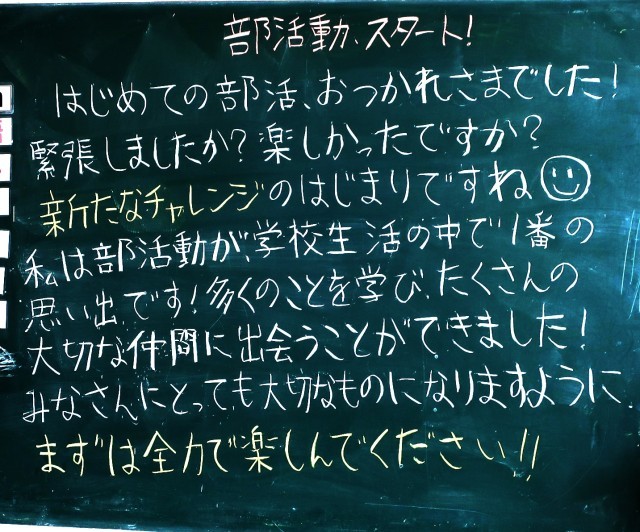 部活動、スタート!
はじめての部活、おつかれさまでした!
緊張しましたか?楽しかったですか?
新たなチャレンジのはじまりですね
私は部活動が、学校生活の中で1番の
思い出です!多くのことを学び、たくさんの
大切な仲間に出会うことができました!
みなさんにとっても大切なものになりますように
まずは全力で楽しんでください!!